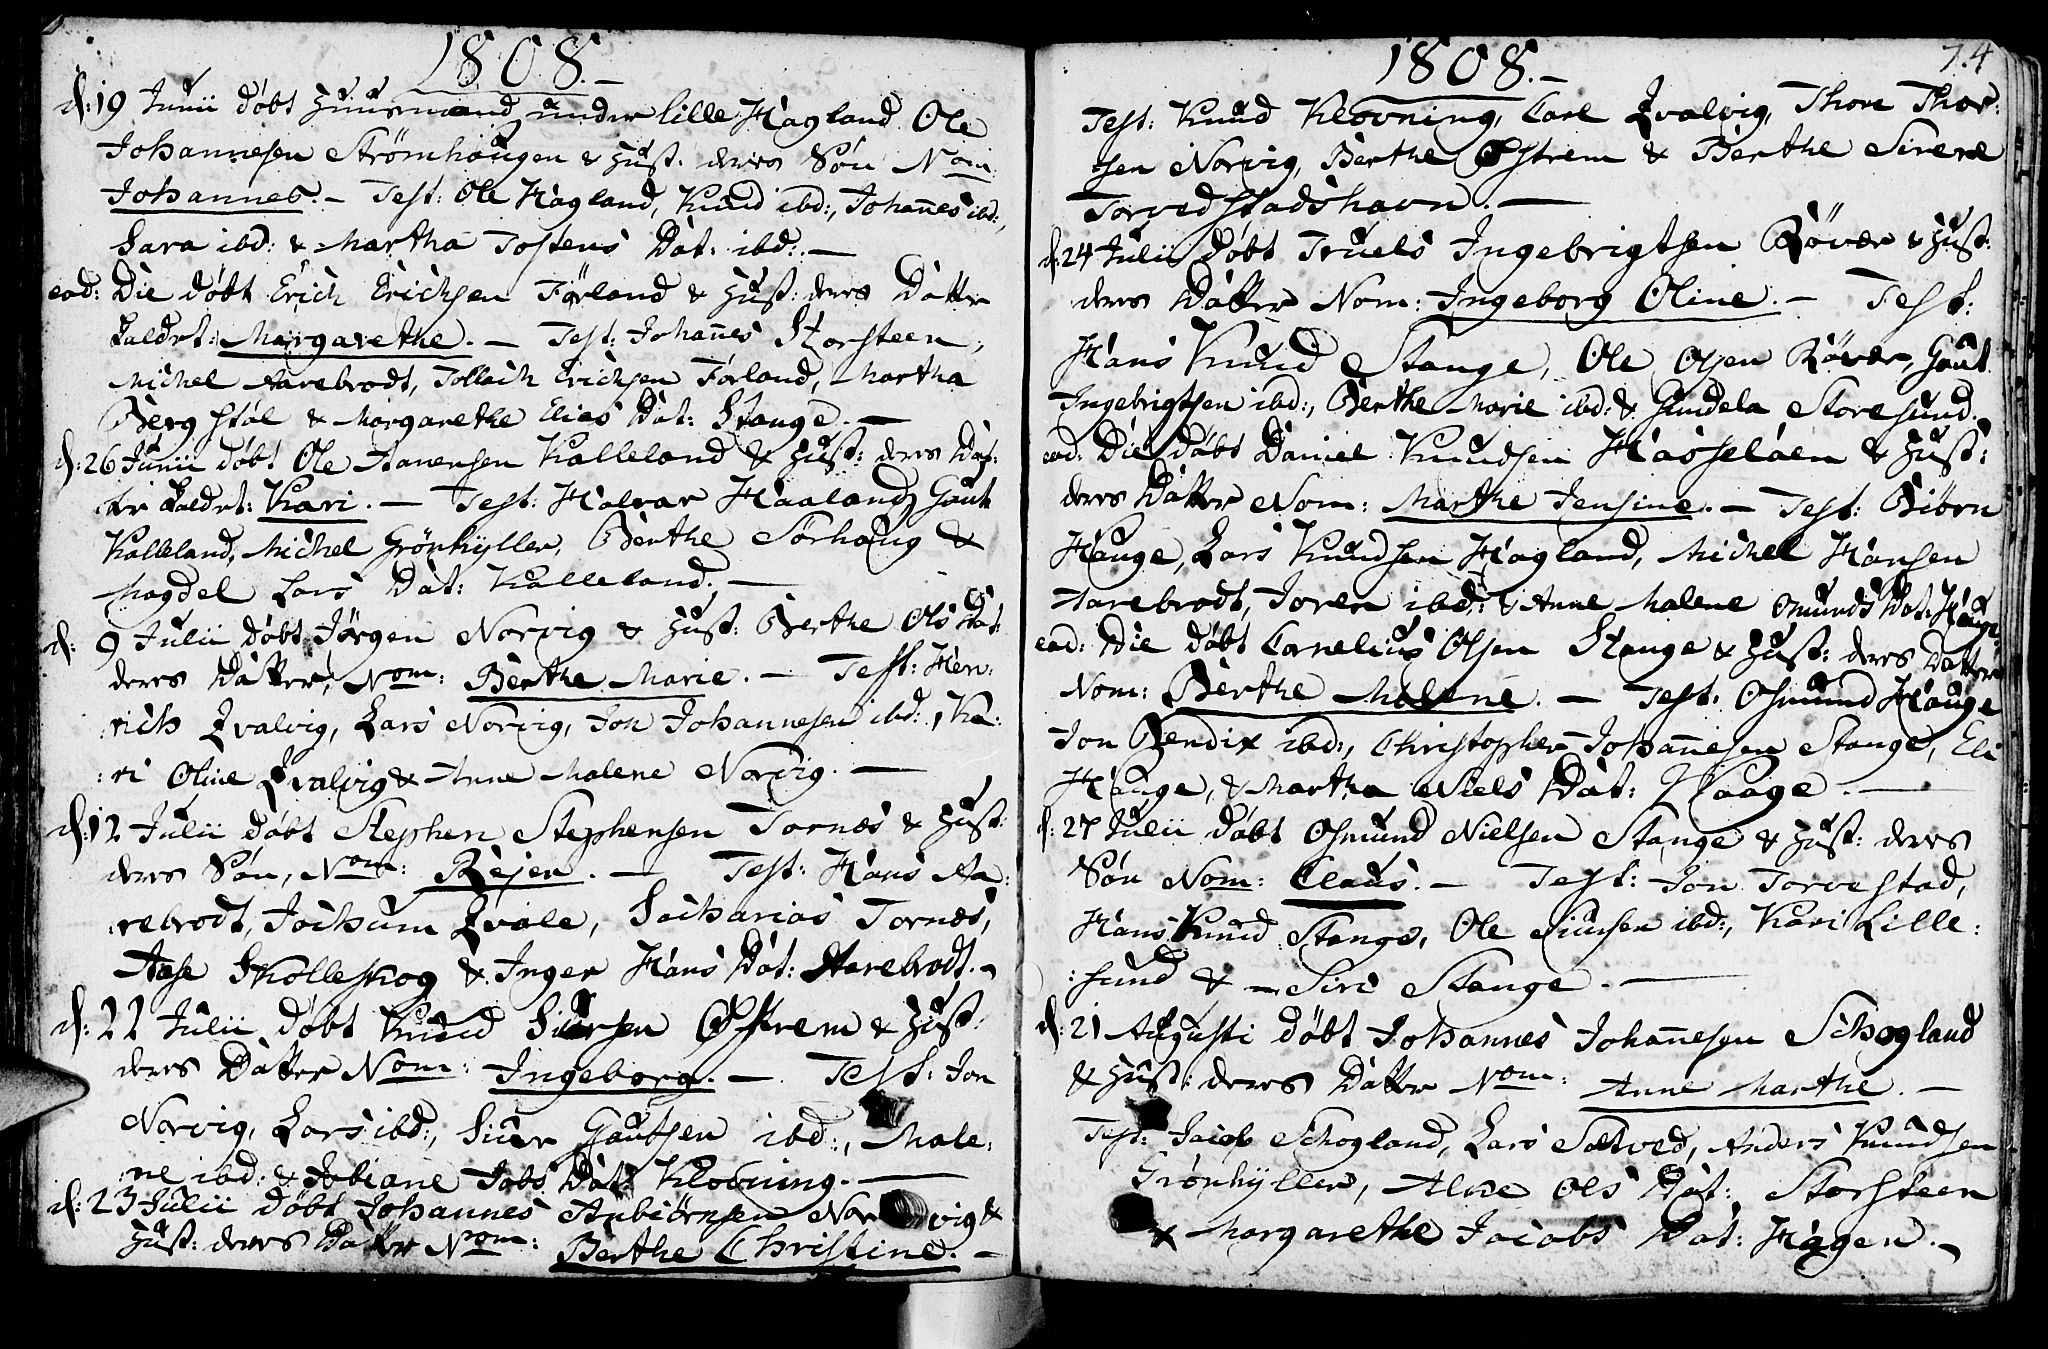 1808.-
d: 19 Junii døbt Huusmand under lille Hagland Ole
Johannesen Strömhaugen & Hust: deres Sön Nom:
Johannes. - Test: Ole Hagland, Knud ibd:, Johañes ibd:,
Sara ibd: & Martha Tostens Dat: ibd: -
eod: Die døbt Erich Erichsen Förland & Hust: deres Datter
kaldet: Margarethe. - Test: Johañes Storsteen,
Michel Aarebrodt, Tollach Erichsen Förland, Martha
Bergstøl & Margarethe Elias Dat: Stange. -
d: 26 Junii døbt Ole Aanensen Kalleland & Hust: deres Dat:
ter kaldet: Kari. - Test: Halvar Haaland, Gaut
Kalleland, Michel Grönhyller, Berthe Sørhaug &
Magdel Lars Dat: Kalleland. -
d: 9 Julii døbt Jörgen Norvig & Hust: Berthe Ols Dat:
deres Datter, Nom: Berthe Marie. - Test: Hen:
:rich Qvalvig, Lars Norvig, Jon Johannesen ibd:, Ka:
:ri Oline Qvalvig & Anne Malene Norvig. -
d: 12 Julii døbt Stephen Stephensen Tornes & Hust:
deres Sön, Nom: Rejer. - Test: Hans Aa:
:rebrodt, Jochum Qvale, Sacharias Tornes,
Aase Skolleskog & Inger Hans Dat: Aarebrodt. -
d: 22 Julii døbt Knud Siursen Østrem & Hust:
deres Datter Nom: Ingeborg. - Test: Jon
Norvig, Lars ibd:, Siur Gautsen ibd:, Male:
:ne ibd: & Jobiane Jobs Dat: Klovning. -
d: 23 Julii døbt Johannes Anbiörnsen Norvig &
Hust: deres Datter Nom: Berthe Christine. -
1808.-
74
Test: Knud Klovning, Carl Qvalvig, Thore Thor:
sen Norvig, Berthe Østrem & Berthe Sirene
Torvedstadshavn. -
d: 24 Julii døbt Truels Ingebrigtsen Röver & Hust:
deres Datter Nom: Ingeborg Oline. - Test:
Hans Knud Stange, Ole Olsen Röver, Gaut
Ingebrigtsen ibd:, Berthe Marie ibd: & Gundela Storesund.
eod: Die døbt Daniel Knudsen Hasseløen & Hust:
deres Datter Nom: Marthe Jensine. - Test: Biörn
Hauge, Lars Knudsen Hagland, Michel Hansen
Aarebrodt, Joren ibd: & Anne Malene Omunds Dat: Hauge
eod: Die døbt Cornelius Olsen Stange & Hust: deres Datter
Nom: Berthe Malene. - Test: Osmund Hauge
Jon Bendix ibd:, Christopher Johañesen Stange, Eli
Hauge, & Martha Niels Dat: Haage. -
d: 27 Julii døbt Osmund Nielsen Stange & Hust: deres
Sön Nom: Claus. - Test: Jon Torvestad,
Hans Knud Stange, Ole Siursen ibd:, Kari Lille:
:sund & Siri Stange. -
d: 21 Augusti døbt Johannes Johañesen Schogland
& Hust: deres Datter Nom: Anne Marthe. -
Test: Jacob Schogland, Lars Sætved, Anders Knudsen
Grönhyller, Ols Dat: Storsteen
& Margarethe Jacobs Dat: Hagen. -